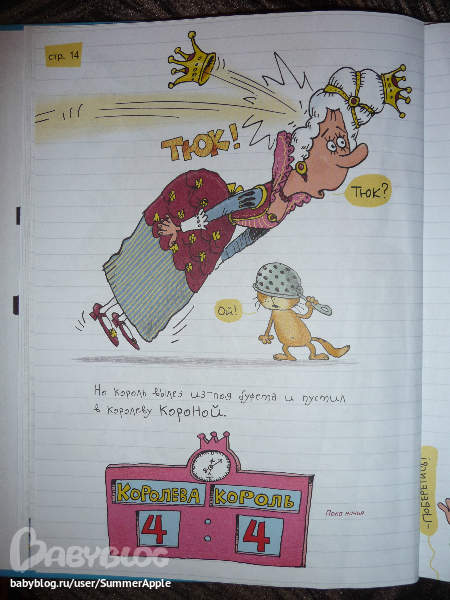 стр. 14
ТЮК!
ТЮК?
Ой!
Но король вылез из-под буфета и пустил
в королеву КОРОНОЙ.
КОРОЛЕВА КОРОЛЬ
4 : 4
Пока ничья
-ПОБЕРЕГИСЬ!
BABYBLOG
babyblog.ru/user/SummerApple